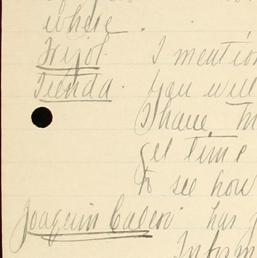 where.
Hijol. I mention
Tienda. You will
I have
get time
to see how
Joaquin has
Inform